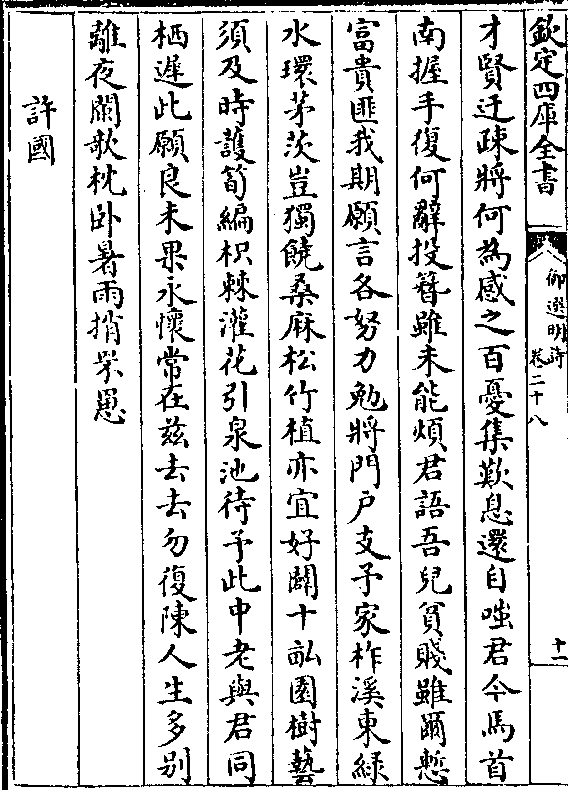 欽定四庫全書
御選明詩 卷二十八
十一
才賢迂疎將何為感之百憂集歎息還自嗤君今馬首
南握手復何辭投簪雖未能煩君語吾兒貧賤雖爾慙
富貴匪我期願言各努力勉將門户支予家柞溪東緑
水環茅茨豈獨饒桑麻松竹植亦宜好闢十畝園樹藝
須及時護筍編枳棘灌花引泉池待予此中老與君同
栖遲此願良未果永懷常在兹去去勿復陳人生多别
離夜闌歌枕卧暑雨捎罘罳
許國